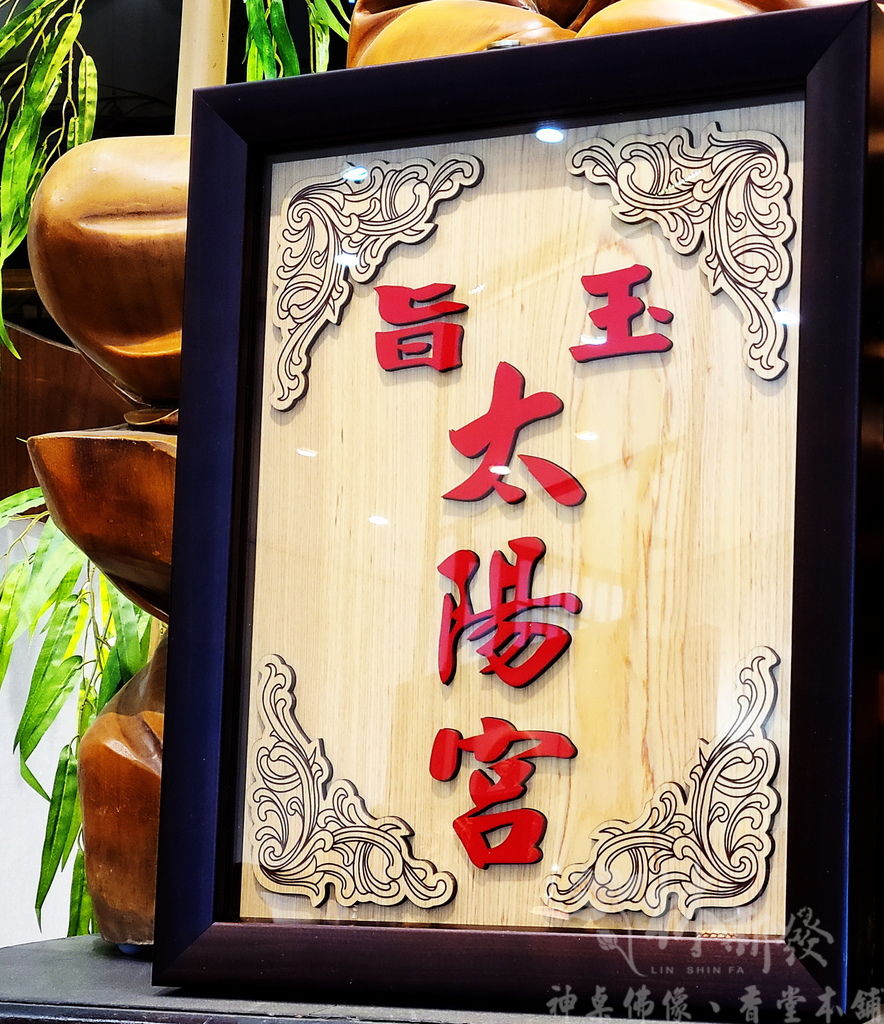 玉旨
太陽宮
新發
LIN SHIN FA
神桌佛像、看堂本舖